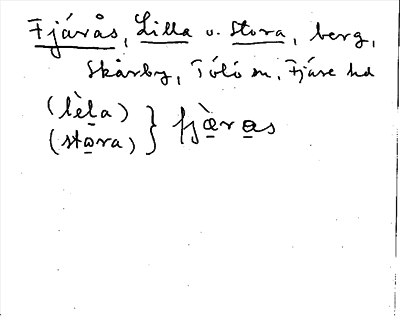 Fjärås, Lilla o. Stora, berg,
Skårby, Tölö sn, Fjäre hd
(lèla)
(stora,) } fjæ̀ras